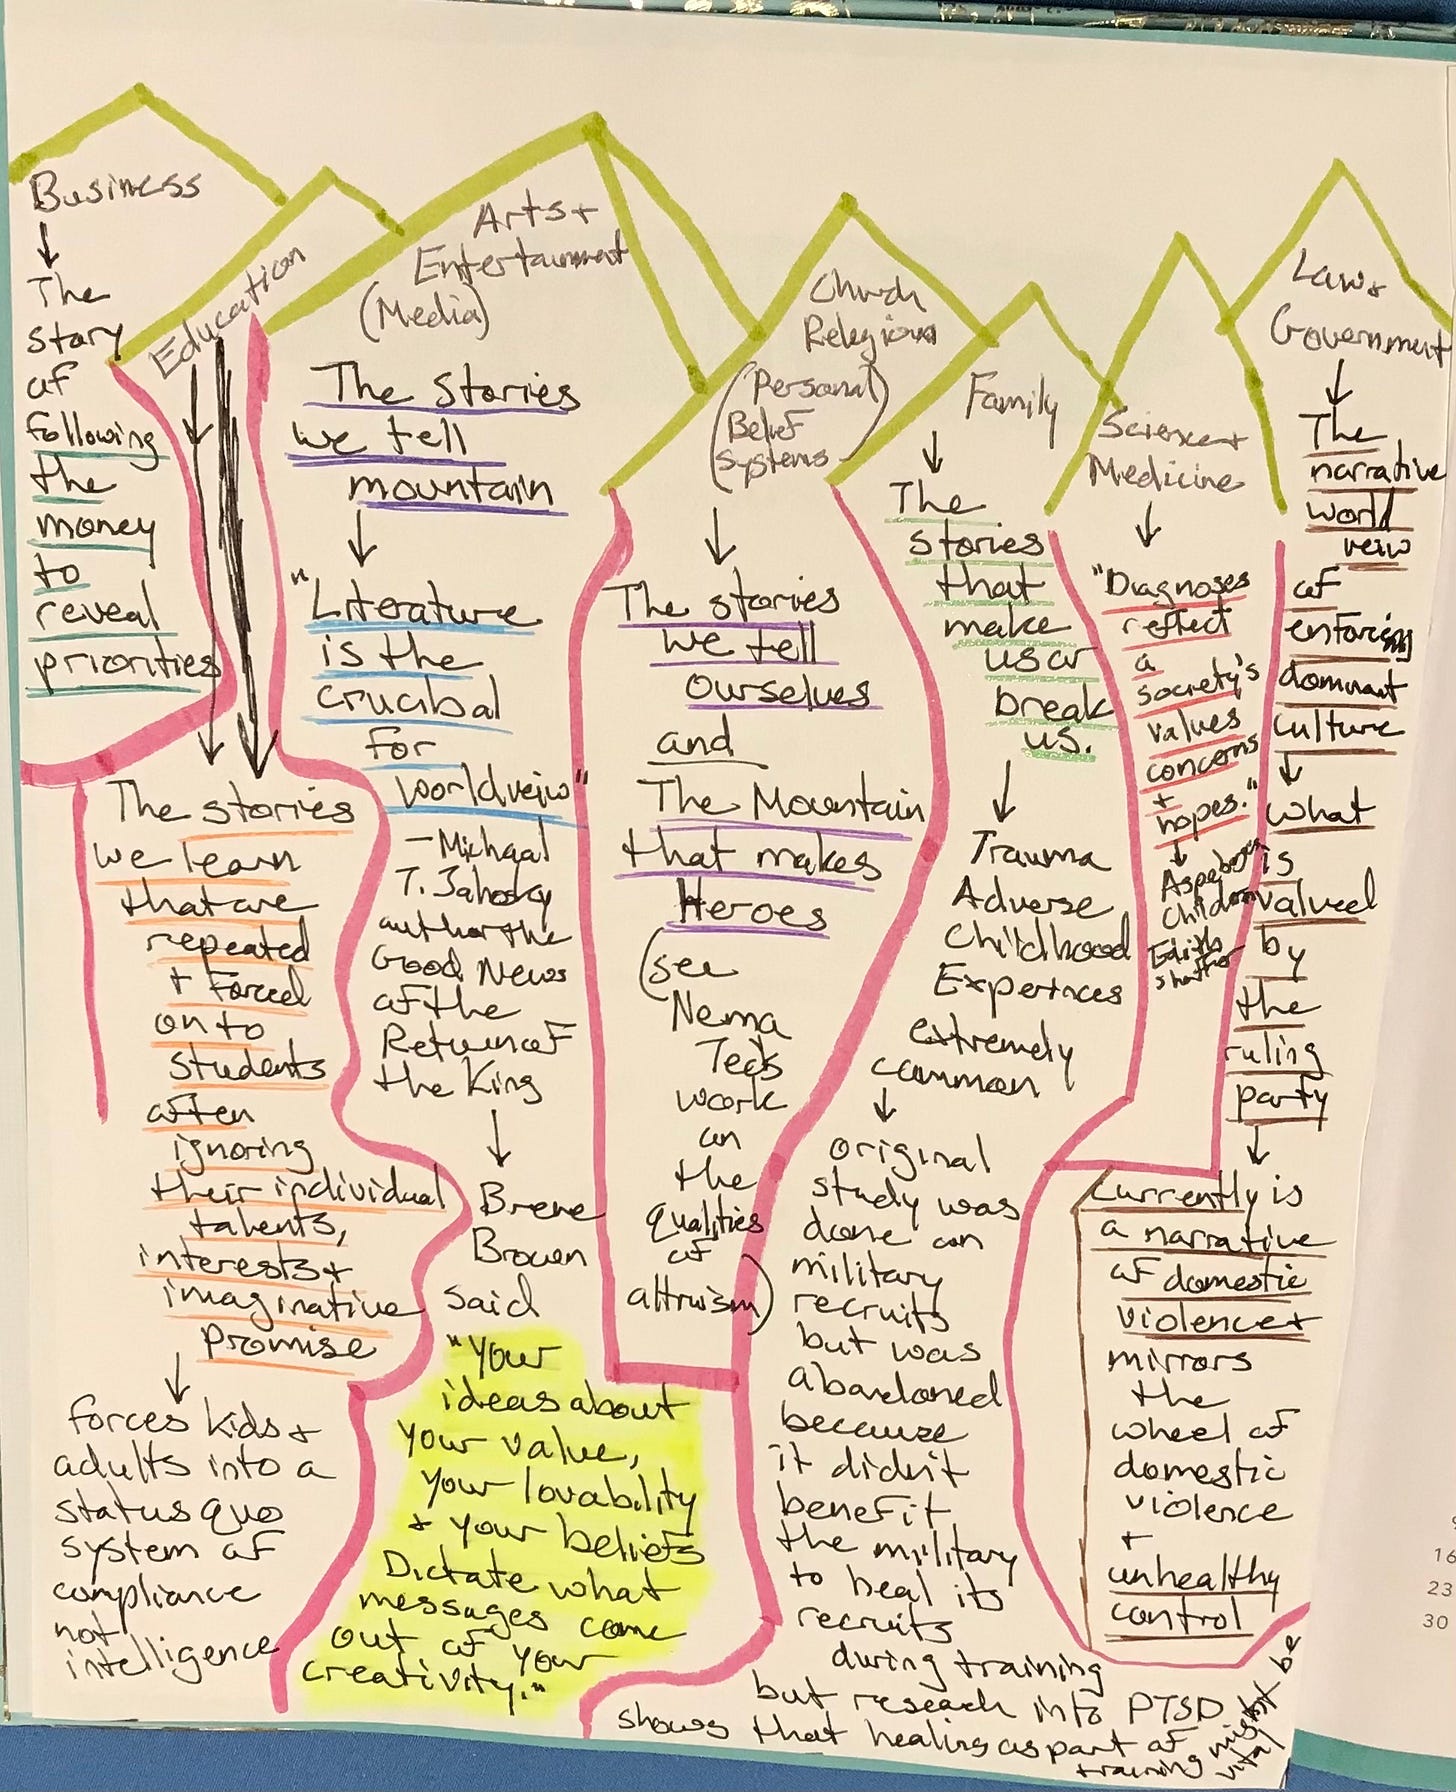 Business
The
story
of
following
the
money
to
reveal
priorities
Education
The stories
we learn
that are
repeated
+ Forced
onto
students
often
ignoring
their individual
talents,
interests +
imaginative
promise
forces kids +
adults into a
status quo
system of
compliance
not
intelligence
Arts +
Entertainment
(Media)
The Stories
we tell
mountain
"Literature
is the
crucibal
for
worldveiw"
- Michael
T. Jahosky
author the
Good News
of the
Return of
the King
Brene
Brown
said
"Your
ideas about
your value,
your lovability
+ your beliefs
Dictate what
messages come
out of your
creativity."
Church
Religious
(Personal
Belief
Systems)
The stories
we tell
ourselves
and
The Mountain
that makes
Heroes
(see
Nema
work
on
the
qualities
of
altruism)
Family
The
stories
that
make
us or
break
us.
Trauma
Adverse
Childhood
Experinces
extremely
common
original
study was
done on
military
recruits
but was
abandoned
because
it didn't
benefit
the military
to heal its
recruits
during training
but research into PTSD
shows that healing as part of
training might be
vital
Science +
Medicine
"Diagnoses
reflect
a
society's
values
concerns
+
hopes."
Children
Edith
Law +
Government
The
narrative
world
veiw
of
enforcing
dominant
culture
what
is
valued
by
the
ruling
party
Currently is
a narrative
of domestic
violence +
mirrors
the
wheel of
domestic
violence
+
unhealthy
control
16
23
30